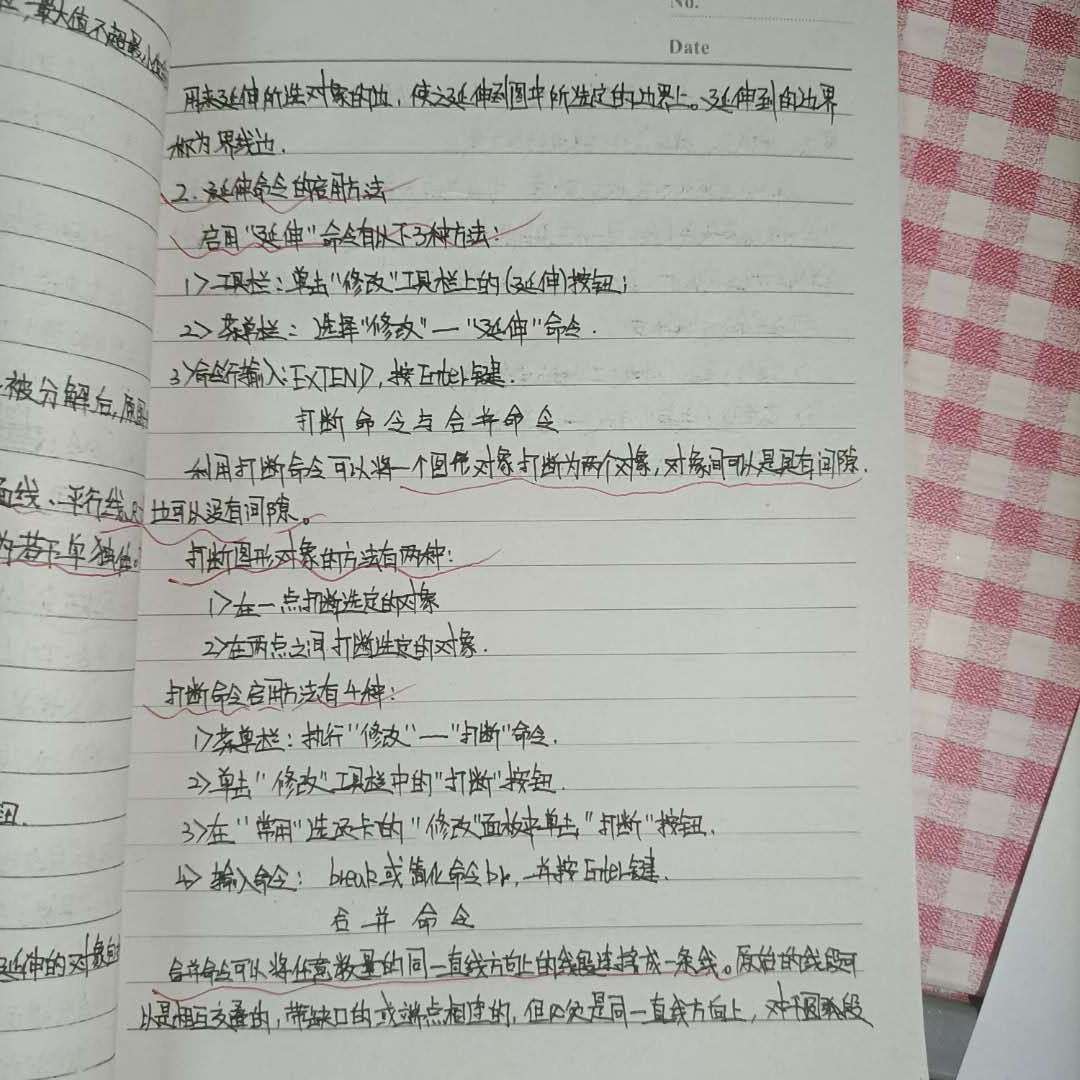 最大值不超最小
被分解后,原
线、平行线
为若干单独
钮.
延伸的对象
No.
Date
用来延伸所选对象的位,使之延伸到图中所选定的边界上。延伸到的边界
称为界线边.
2.延伸命令的启用方法
启用"延伸"命令有以下3种方法:
1>工具栏:单击"修改"工具栏上的(延伸)按钮;
2>菜单栏:选择"修改"—"延伸"命令.
3>命令行输入:EXTEND,按Enter键.
打断命令与合并命令
利用打断命令可以将一个图形对象打断为两个对象,对象间可以是具有间隙.
也可以没有间隙。
打断图形对象的方法有两种:
1>在一点打断选定的对象
2>在两点之间打断选定的对象.
打断命令启用方法有4种:
1>菜单栏:执行"修改"—"打断"命令.
2>单击"修改"工具栏中的"打断"按钮.
3>在"常用"选项卡的"修改"面板中单击"打断"按钮.
4>输入命令:break或简化命令br,并按Enter键.
合并命令
合并命令可以将任意数量的同一直线方向上的线段连接成一条线。原始的线段可
以是相互交叠的,带缺口的或端点相连的,但必须是同一直线方向上,对于圆弧段